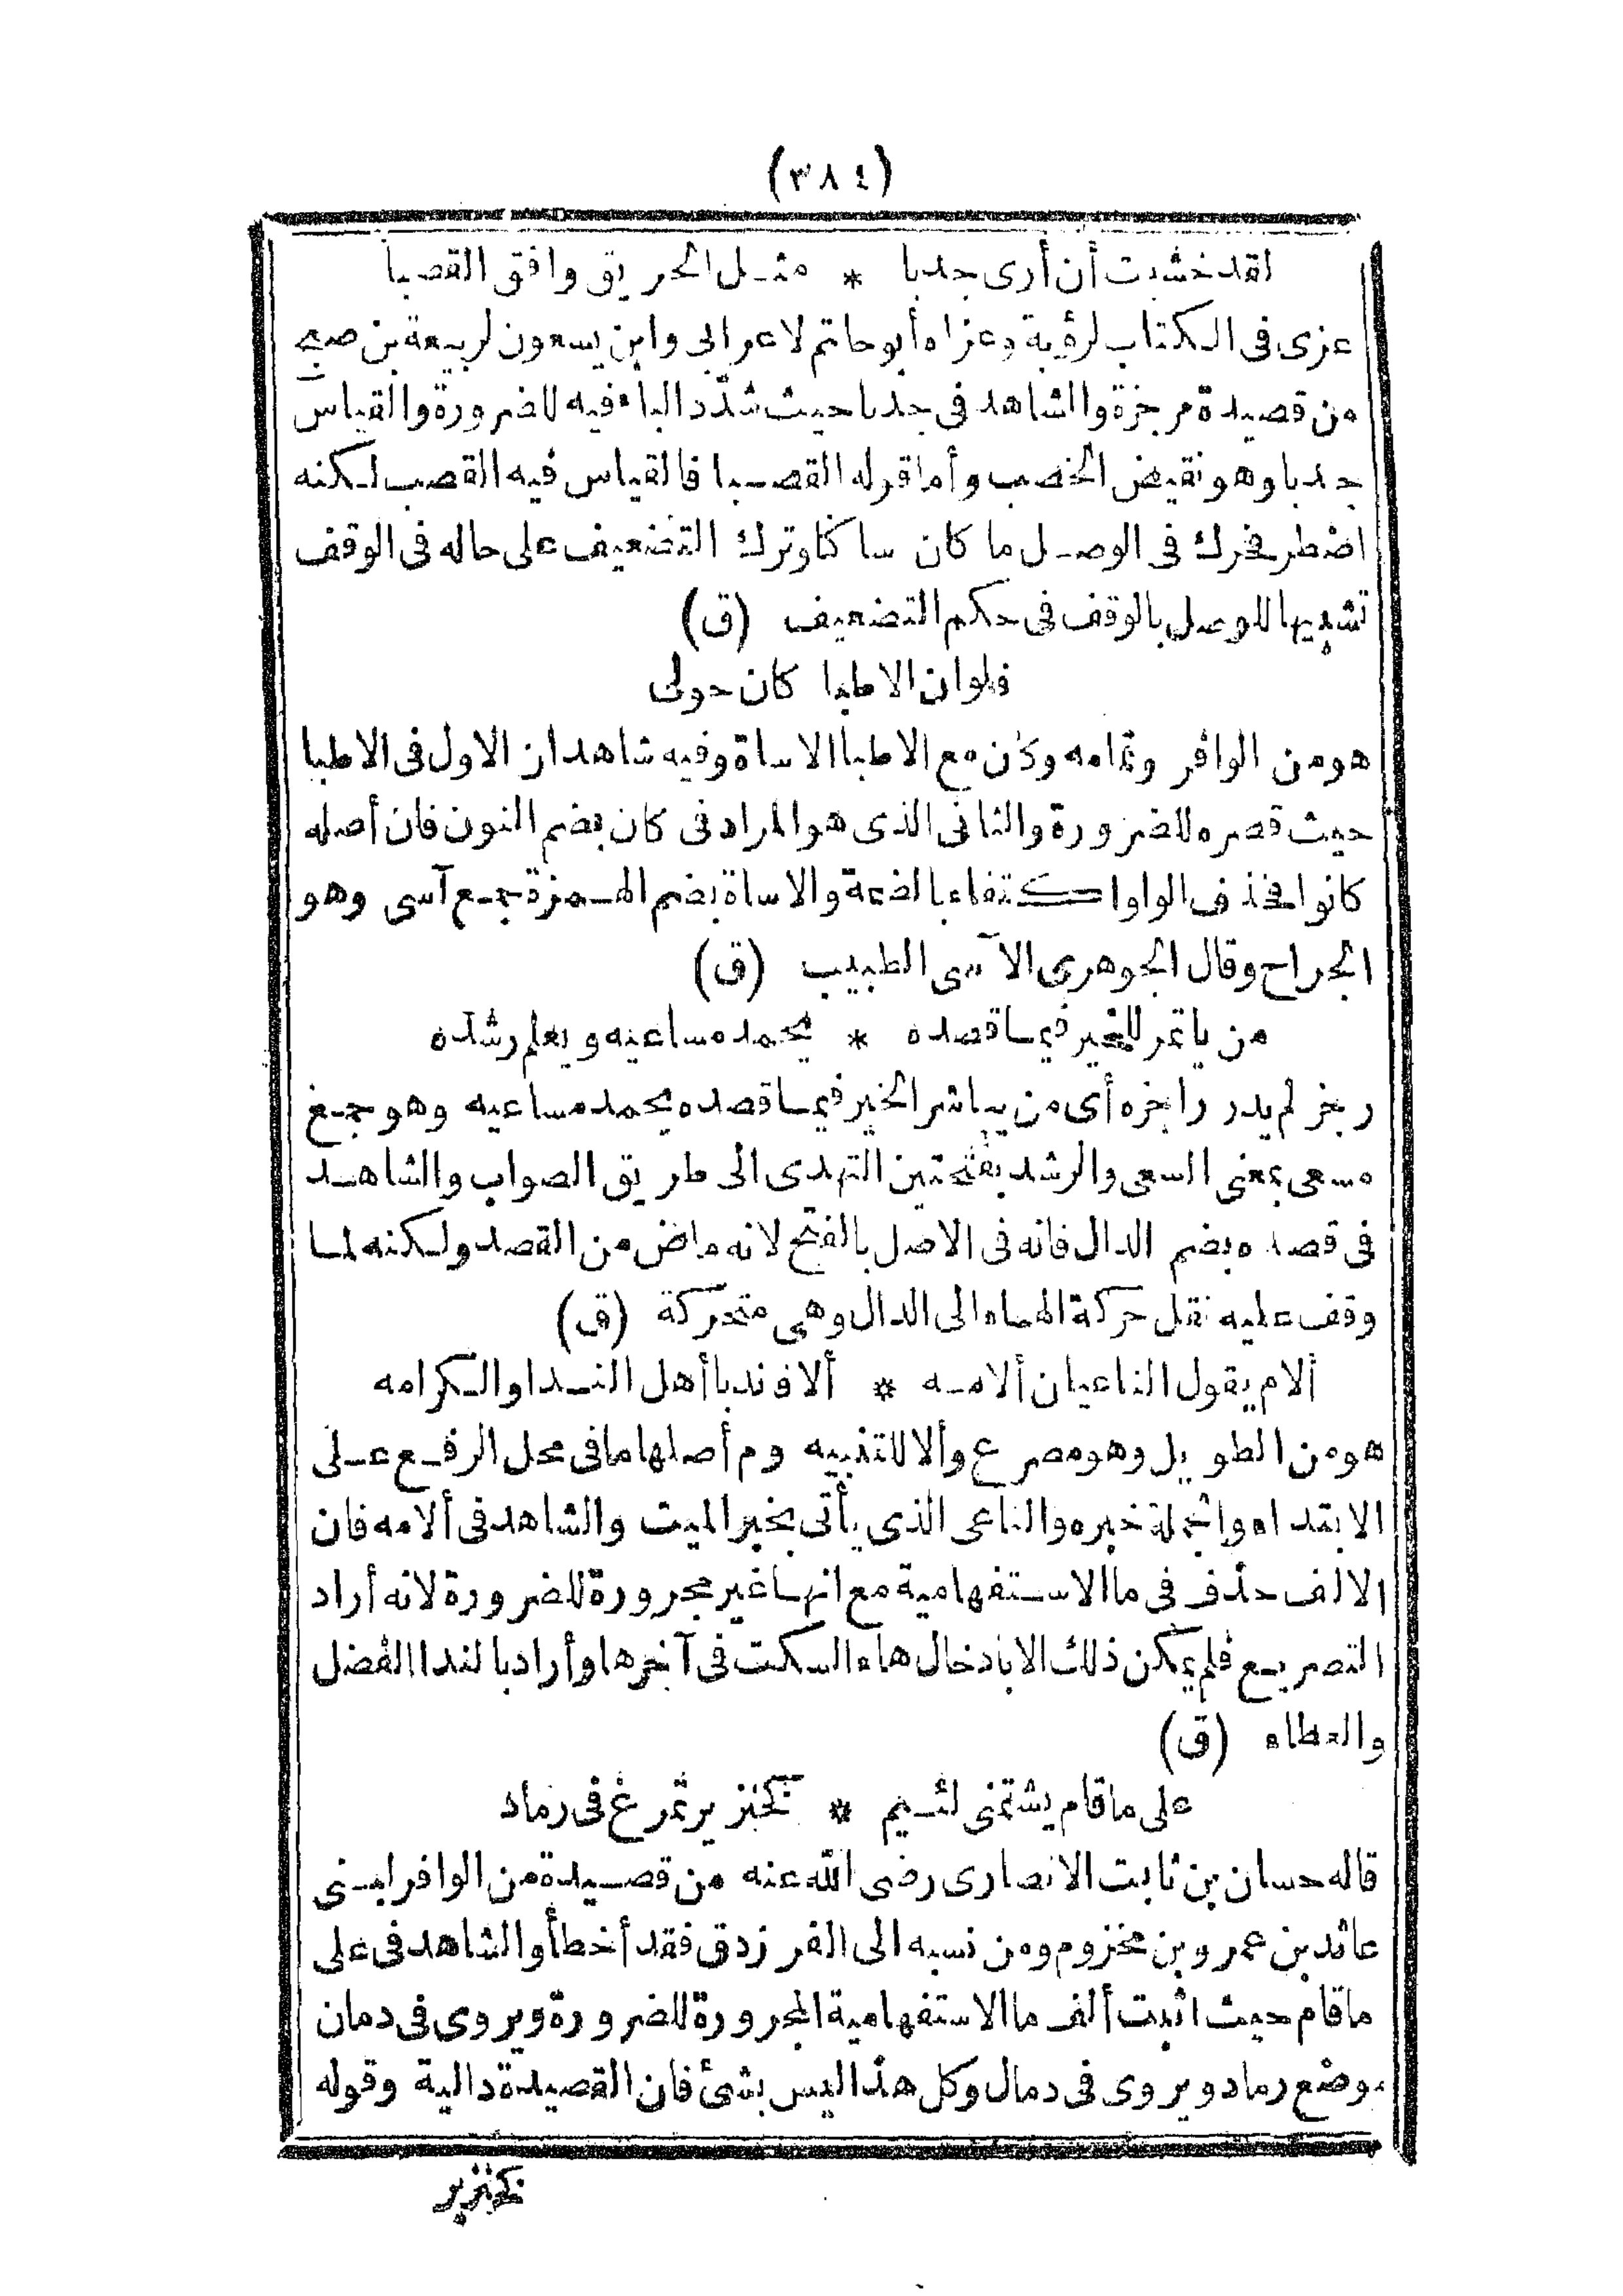 (٣٨٤)
لقد خشيت أن أرى جدبا * مثل الحريق وافق القصبا
عزى فى الكتاب لرؤبة وعزاه أبو حاتم لاعرابى وابن يسعون لربيعة بن صبح
من قصيدة مرجزة والشاهد فى جدبا حيث شدّد الباء فيه للضرورة والقياس
جدبا وهو نقيض الخصب وأما قوله القصبا فالقياس فيه القصب لكنه
اضطر فحرك فى الوصل ما كان ساكنا وترك التضعيف على حاله فى الوقف
تشبيها للوصل بالوقف فى حكم التضعيف (ق)
فلوان الاطبا كان حولى
هو من الوافر وتمامه وكان مع الاطبا الاساة وفيه شاهدان الاول فى الاطبا
حيث قصره للضرورة والثانى الذى هو المراد فى كان بضم النون فان أصله
كانوا فحذف الواو اكتفاء بالضمة والاساة بضم الهمزة جمع آسى وهو
الجراح وقال الجوهرى الآسى الطبيب (ق)
من ياتمر للخير فيما قصده * يحمد مساعيه ويعلم رشده
رجز لم يدر راجزه أى من يباشر الخير فيما قصده يحمد مساعيه وهو جمع
مسعى بمعنى السعى والرشد بفتحتين التهدى الى طريق الصواب والشاهد
فى قصده بضم الدال فانه فى الاصل بالفتح لانه ماض من القصد ولكنه لما
وقف عليه نقل حركة الهاء الى الدال وهى متحركة (ق)
ألام يقول الناعيان ألامه * ألا فاندبا أهل الندا والكرامه
هو من الطويل وهو مصرع وألا للتنبيه وم أصلها ما فى محل الرفع على
الابتداء والجملة خبره والناعى الذى يأتى بخبر الميت والشاهد فى ألامه فان
الالف حذف فى ما الاستفهامية مع انها غير مجرورة للضرورة لانه أراد
التصريع فلم يمكن ذلك الا بادخال هاء السكت فى آخرها وأراد بالندا الفضل
والعطاء (ق)
على ما قام يشتمنى لئيم * كخنزير تمرغ فى رماد
قاله حسان بن ثابت الانصارى رضى الله عنه من قصيدة من الوافر لبنى
عائد بن عمرو بن مخزوم ومن نسبه الى الفرزدق فقد أخطأ والشاهد فى على
ما قام حيث اثبت ألف ما الاستفهامية المجرورة للضرورة ويروى فى دمان
موضع رماد ويروى فى دمال وكل هذا ليس بشئ فان القصيدة دالية وقوله
كخنزير